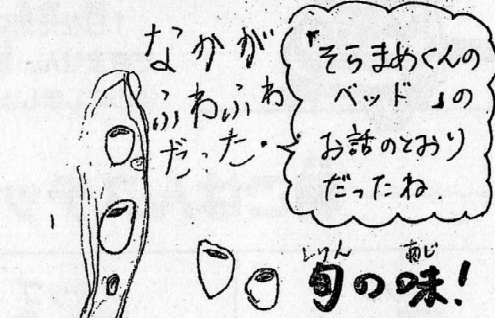 なかが
ふわふわ
だった.
『そらまめくんの
ベッド』の
お話のとおり
だったね.
しゅん あじ
旬の味!